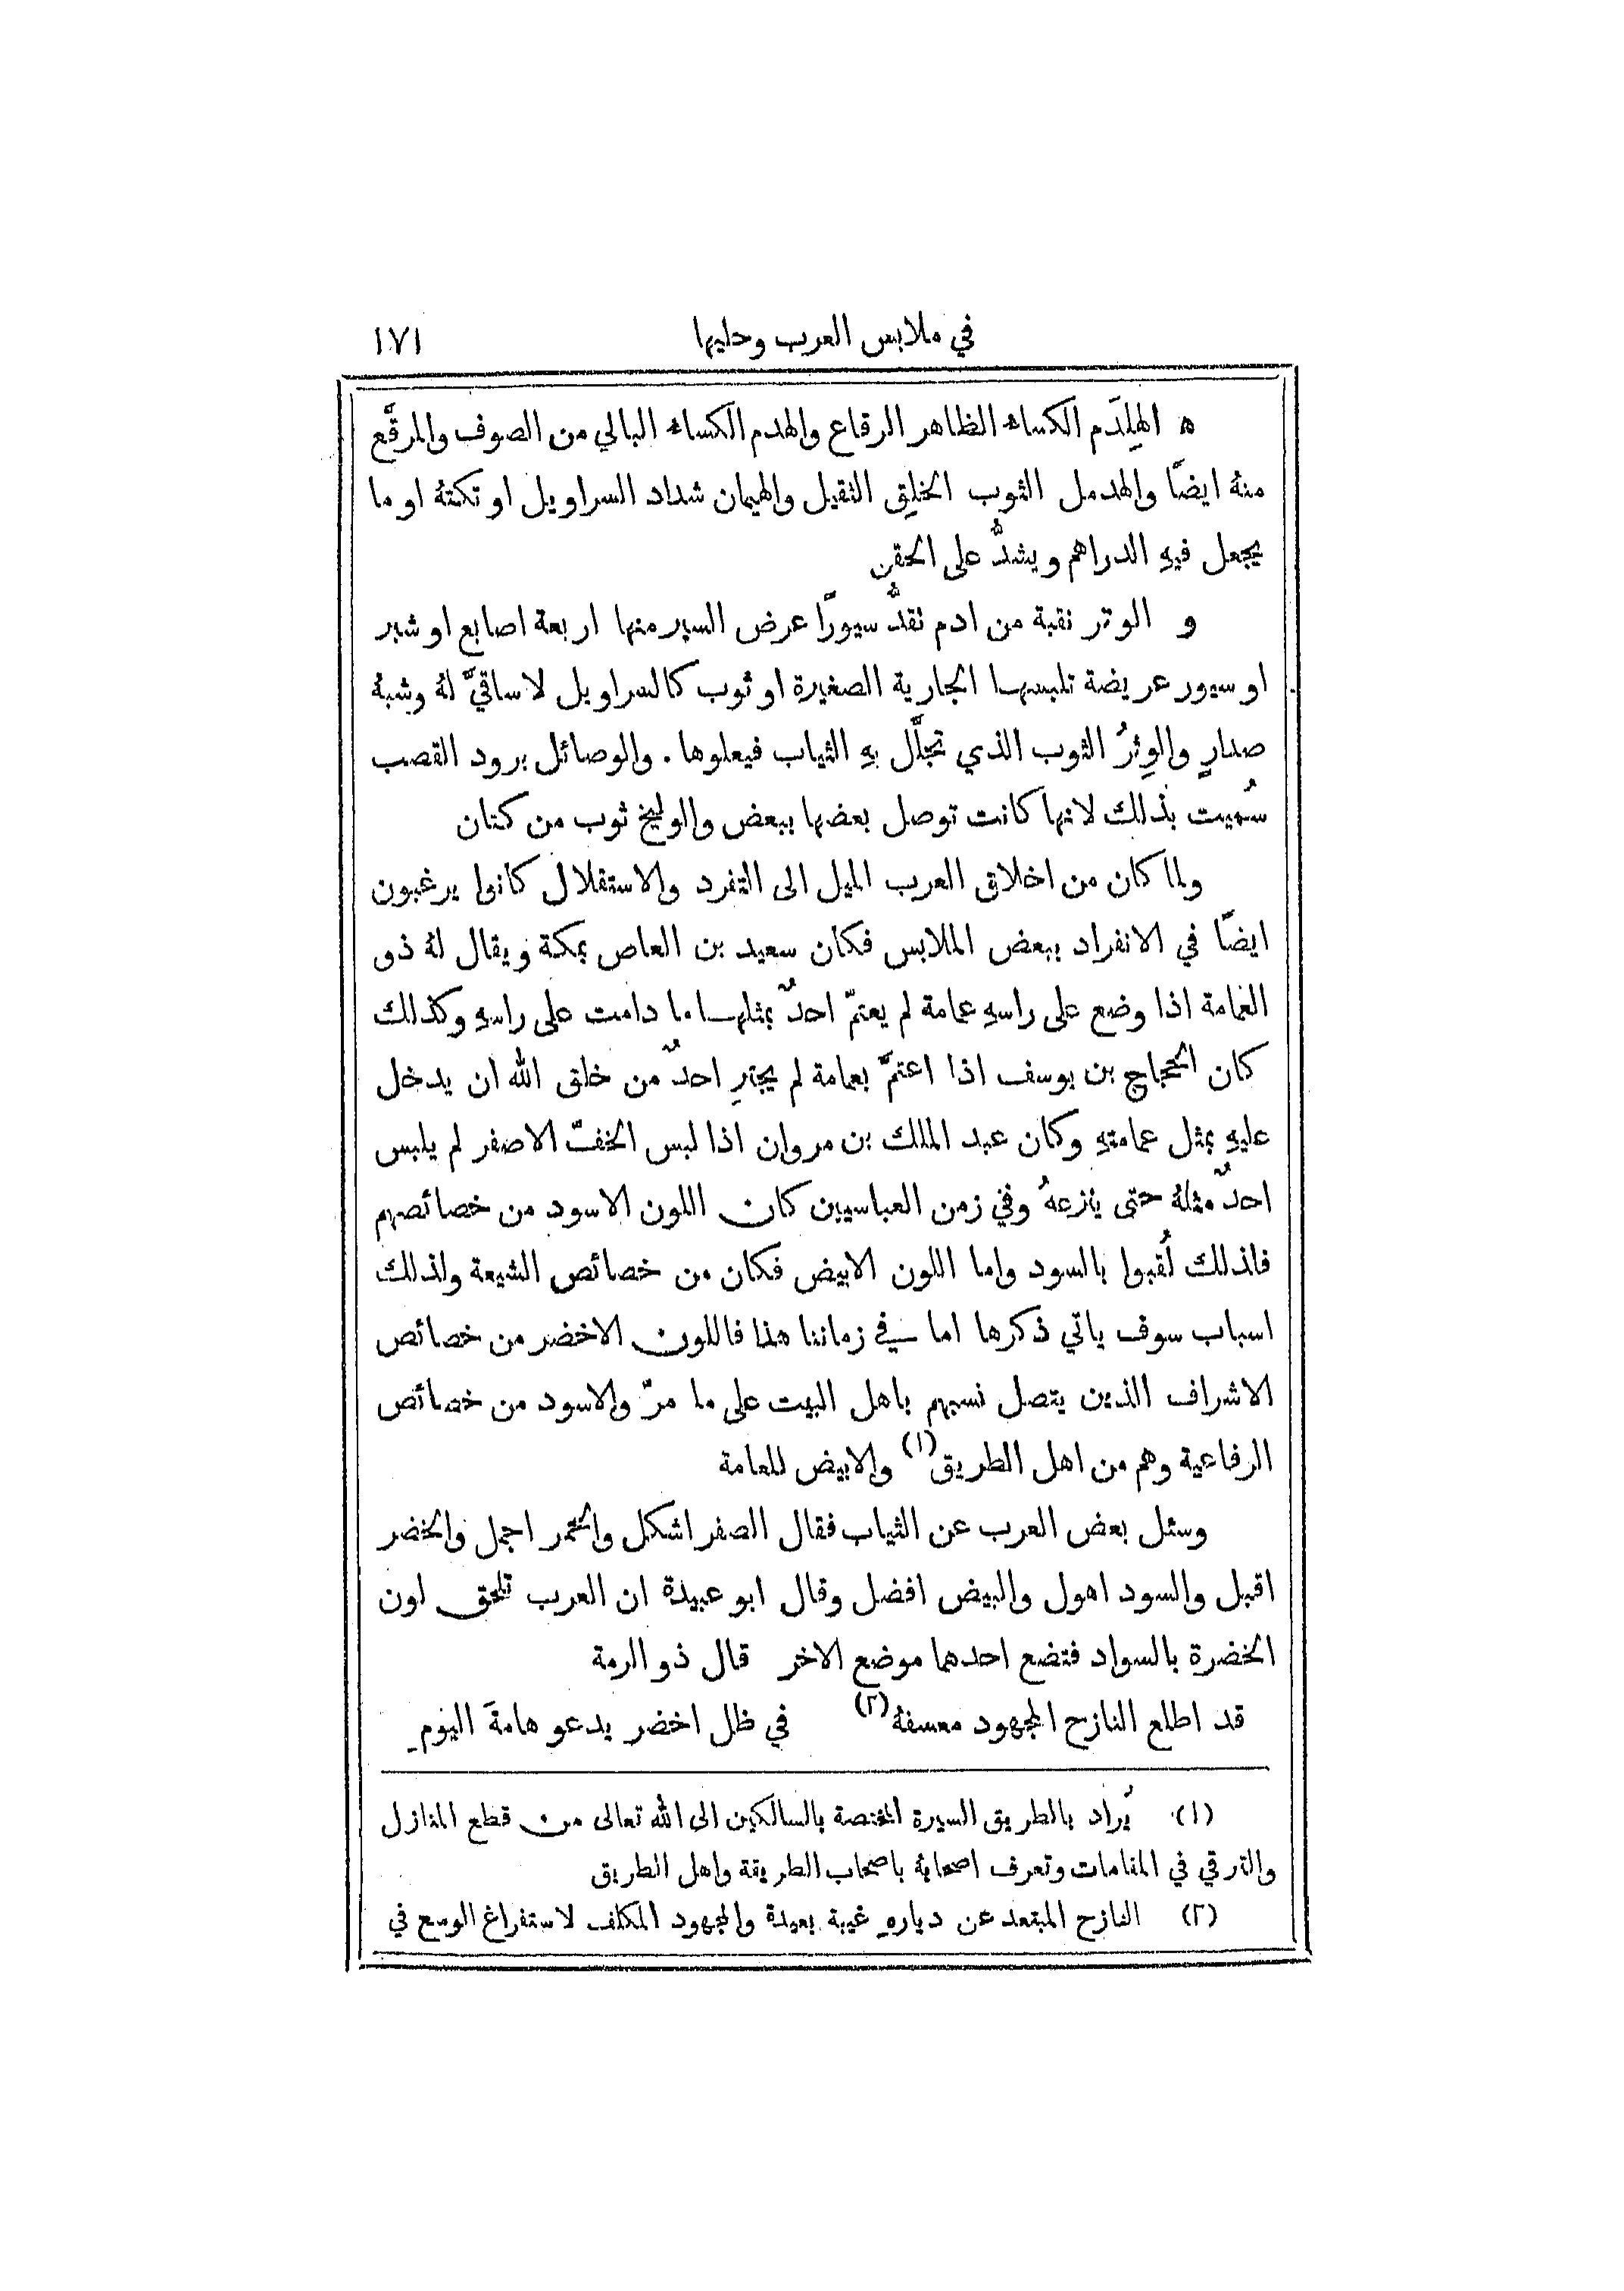 في ملابس العرب وحليها ١٧١
ه الهِلدَم الكساء الظاهر الرقاع والهدم الكساء البالي من الصوف والمرقَّع
منهُ ايضًا والهدمل الثوب الخلِق الثقيل والهميان شداد السراويل او تكتهُ او ما
يجعل فيهِ الدراهم ويشدُّ على الحقو
و الوتر نقبة من ادم تقدُّ سيورًا عرض السير منها اربعة اصابع او شبر
او سيور عريضة تلبسها الجارية الصغيرة او ثوب كالسراويل لا ساقيَّ لهُ وشبهُ
صدارٍ والوِثرُ الثوب الذي تجلَّل بهِ الثياب فيعلوها . والوصائل برود القصب
سُميت بذلك لانها كانت توصل بعضها ببعض والوليخ ثوب من كتان
ولما كان من اخلاق العرب الميل الى التفرد والاستقلال كانوا يرغبون
ايضًا في الانفراد ببعض الملابس فكان سعيد بن العاص بمكة ويقال لهُ ذو
العمامة اذا وضع على راسهِ عمامة لم يعتمَّ احدٌ بمثلها ما دامت على راسهِ وكذلك
كان الحجاج بن يوسف اذا اعتمَّ بعمامة لم يجترِ احدٌ من خلق الله ان يدخل
عليهِ بمثل عمامتهِ وكان عبد الملك بن مروان اذا لبس الخفَّ الاصفر لم يلبس
احدٌ مثلهُ حتى ينزعهُ وفي زمن العباسيين كان اللون الاسود من خصائصهم
فلذلك لُقبوا بالسود واما اللون الابيض فكان من خصائص الشيعة ولذلك
اسباب سوف ياتي ذكرها اما في زماننا هذا فاللون الاخضر من خصائص
الاشراف الذين يتصل نسبهم باهل البيت على ما مرَّ والاسود من خصائص
الرفاعية وهم من اهل الطريق (١) والابيض للعامة
وسئل بعض العرب عن الثياب فقال الصفر اشكل والحمر اجمل والخضر
اقبل والسود اهول والبيض افضل وقال ابو عبيدة ان العرب تلحق لون
الخضرة بالسواد فتضع احدهما موضع الاخر قال ذو الرمة
قد اطلع النازح المجهود معسفهُ (٢) في ظل اخضر يدعو هامةَ اليومِ
(١) يُراد بالطريق السيرة المختصة بالسالكين الى الله تعالى من قطع المنازل
والترقي في المقامات وتعرف اصحابهُ باصحاب الطريقة واهل الطريق
(٢) النازح المبتعد عن ديارهِ غيبة بعيدة والمجهود المكلف لاستفراغ الوسع في